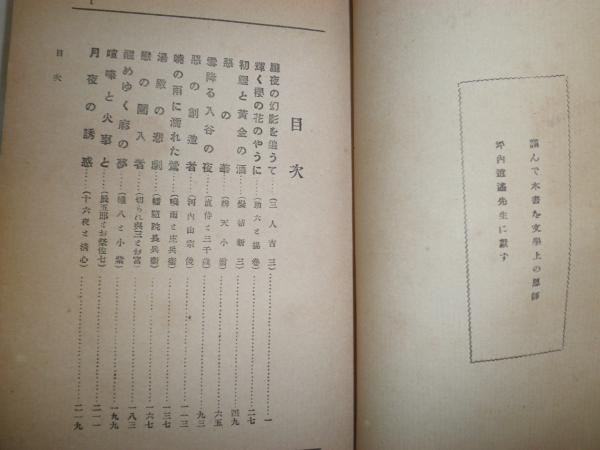 謹んで本書を文學上の恩師
坪内逍遙先生に獻ず
目次
朧夜の幻影を追うて……(三人吉三)……一
輝く櫻の花のやうに……(助六と揚巻)……二七
初鰹と黄金の酒……(髪結新三)……四九
惡の華……(辨天小僧)……六五
雪降る入谷の夜……(直侍と三千歳)……九三
惡の創造者……(河内山宗俊)……一一三
曉の雨に濡れた鶯……(鳴雨と庄兵衞)……一三七
湯殿の悲劇……(幡隨院長兵衞)……一五一
戀の闖入者……(切られ與三とお富)……一六七
醒めゆく廓の夢……(權八と小紫)……一八三
喧嘩と火事と……(長五郎とお祭佐七)……一九九
月夜の誘惑……(十六夜と清心)……二一九
目次